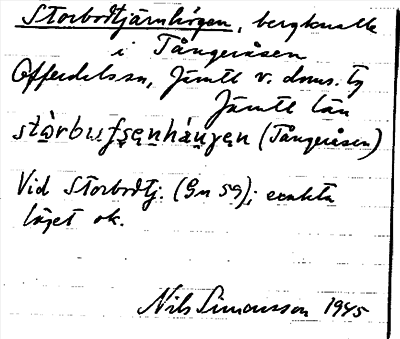 Storbodtjärnhögen, bergknalle
i Tångeråsen
Offerdals sn, Jämtl v. doms. tg
Jämtl län
(Tångeråsen)
Vid Storbodtj. (Gn 59); exakta
läget ok.
Nils Simonsson 1945